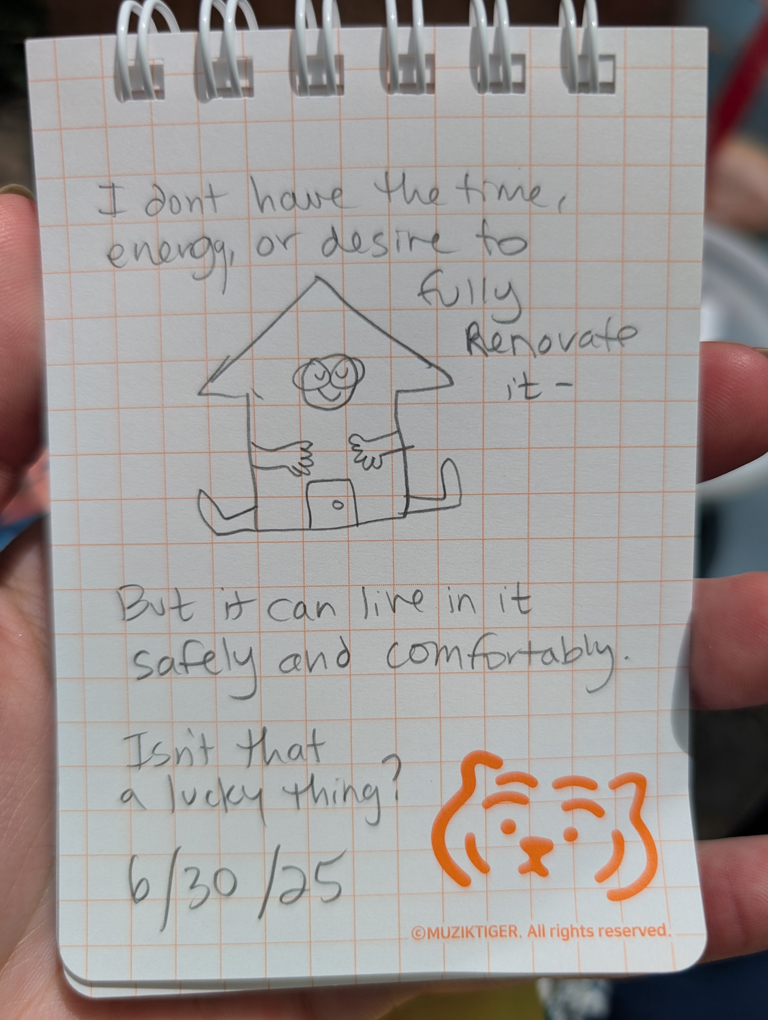 I dont have the time,
energy, or desire to
fully
Renovate
it -
But it can live in it
safely and comfortably.
Isn't that
a lucky thing?
6/30/25
©MUZIKTIGER. All rights reserved.